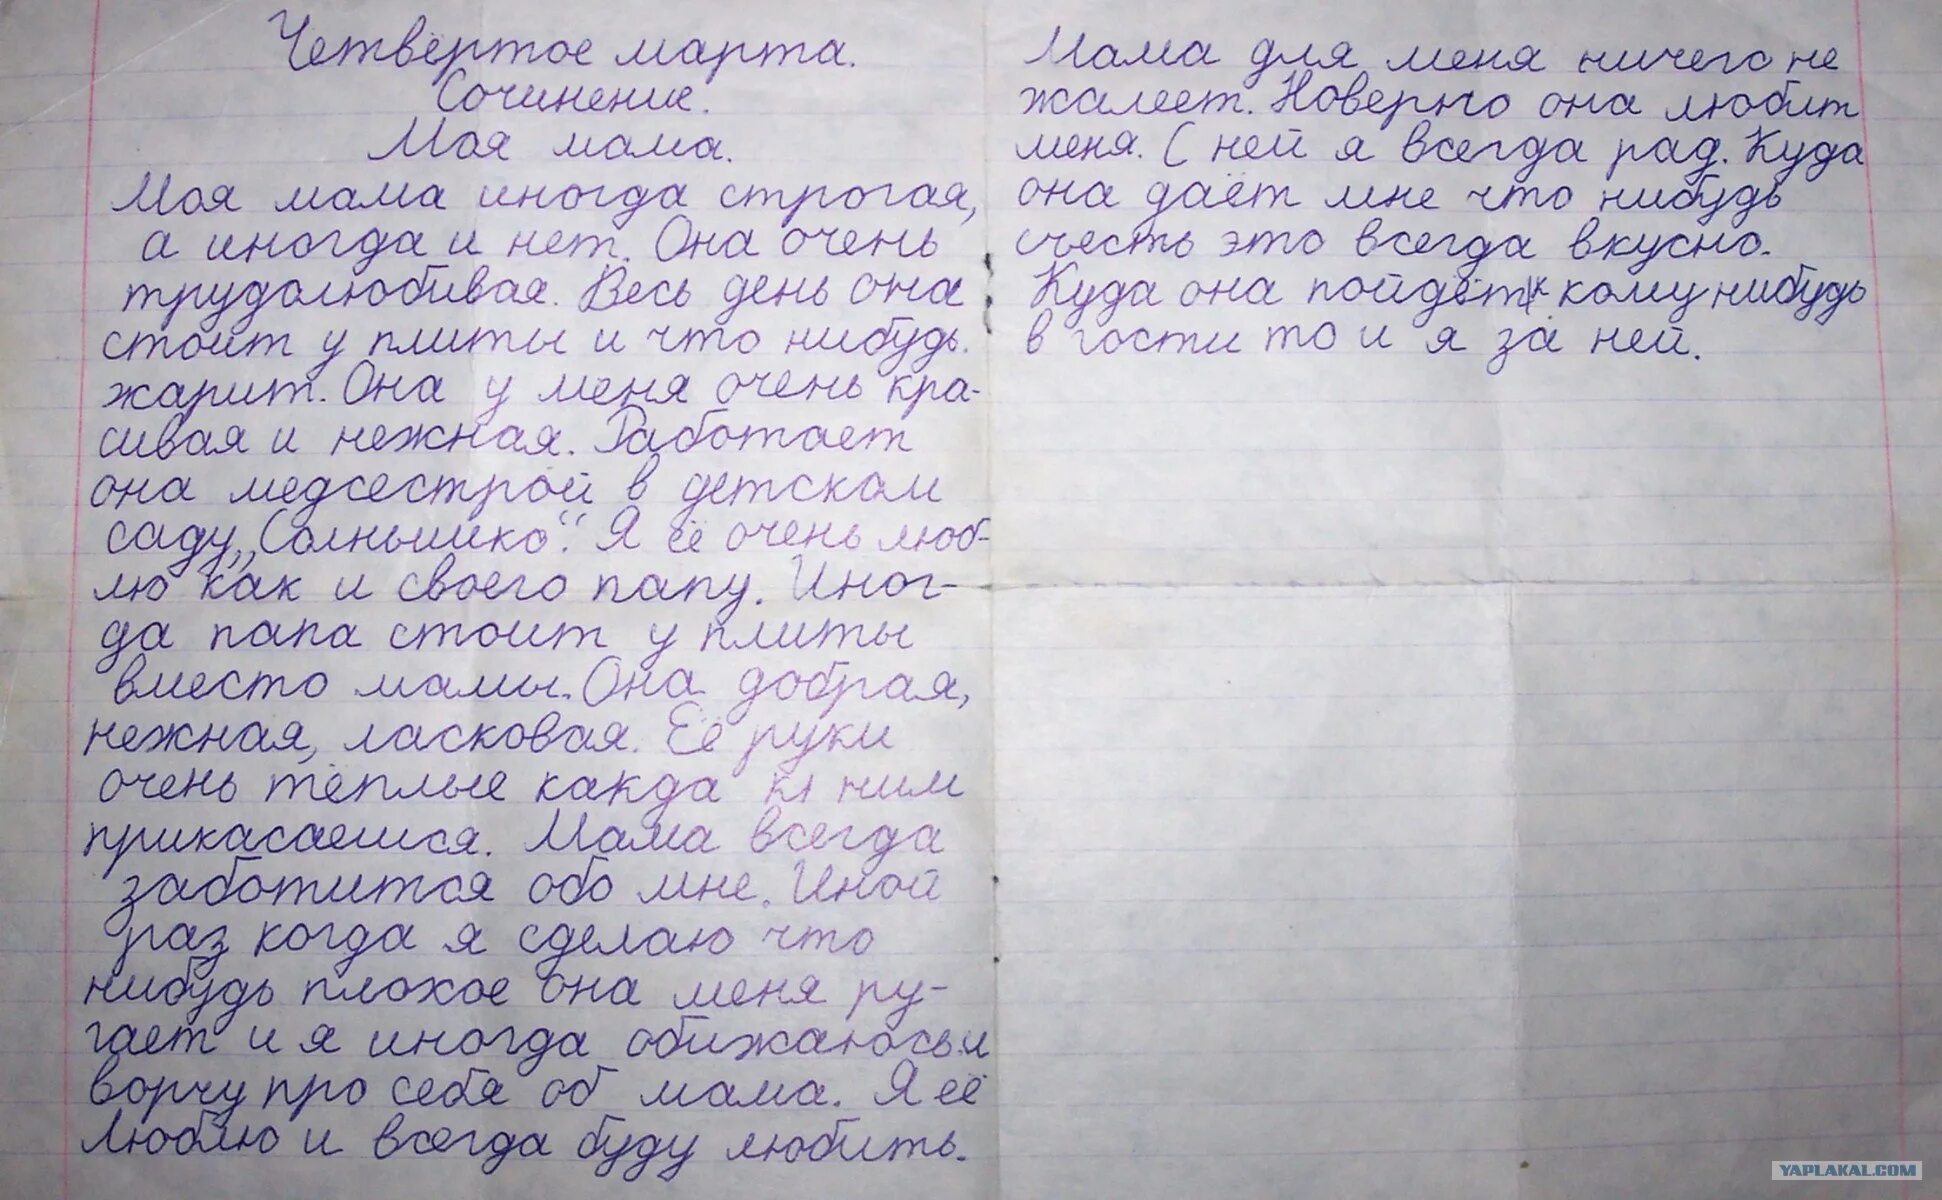 Четвёртое марта.
Сочинение.
Моя мама.
Моя мама иногда строгая,
а иногда и нет. Она очень
трудолюбивая. Весь день она
стоит у плиты и что нибудь.
жарит. Она у меня очень кра-
сивая и нежная. Работает
она медсестрой в детском
саду „Солнышко“. Я её очень люб-
лю как и своего папу. Иног-
да папа стоит у плиты
вместо мамы. Она добрая,
нежная, ласковая. Её руки
очень тёплые какда к ним
прикасаешся. Мама всегда
заботится обо мне. Иной
раз когда я сделаю что
нибудь плохое она меня ру-
гает и я иногда обижаюсь и
ворчу про себя об мама. Я её
люблю и всегда буду любить.
Мама для меня ничего не
жалеет. Новерно она любит
меня. С ней я всегда рад. Куда
она даёт мне что нибудь
счесть это всегда вкусно.
Куда она пойдёт к кому нибудь
в гости то и я за ней.
YAPLAKAL.COM